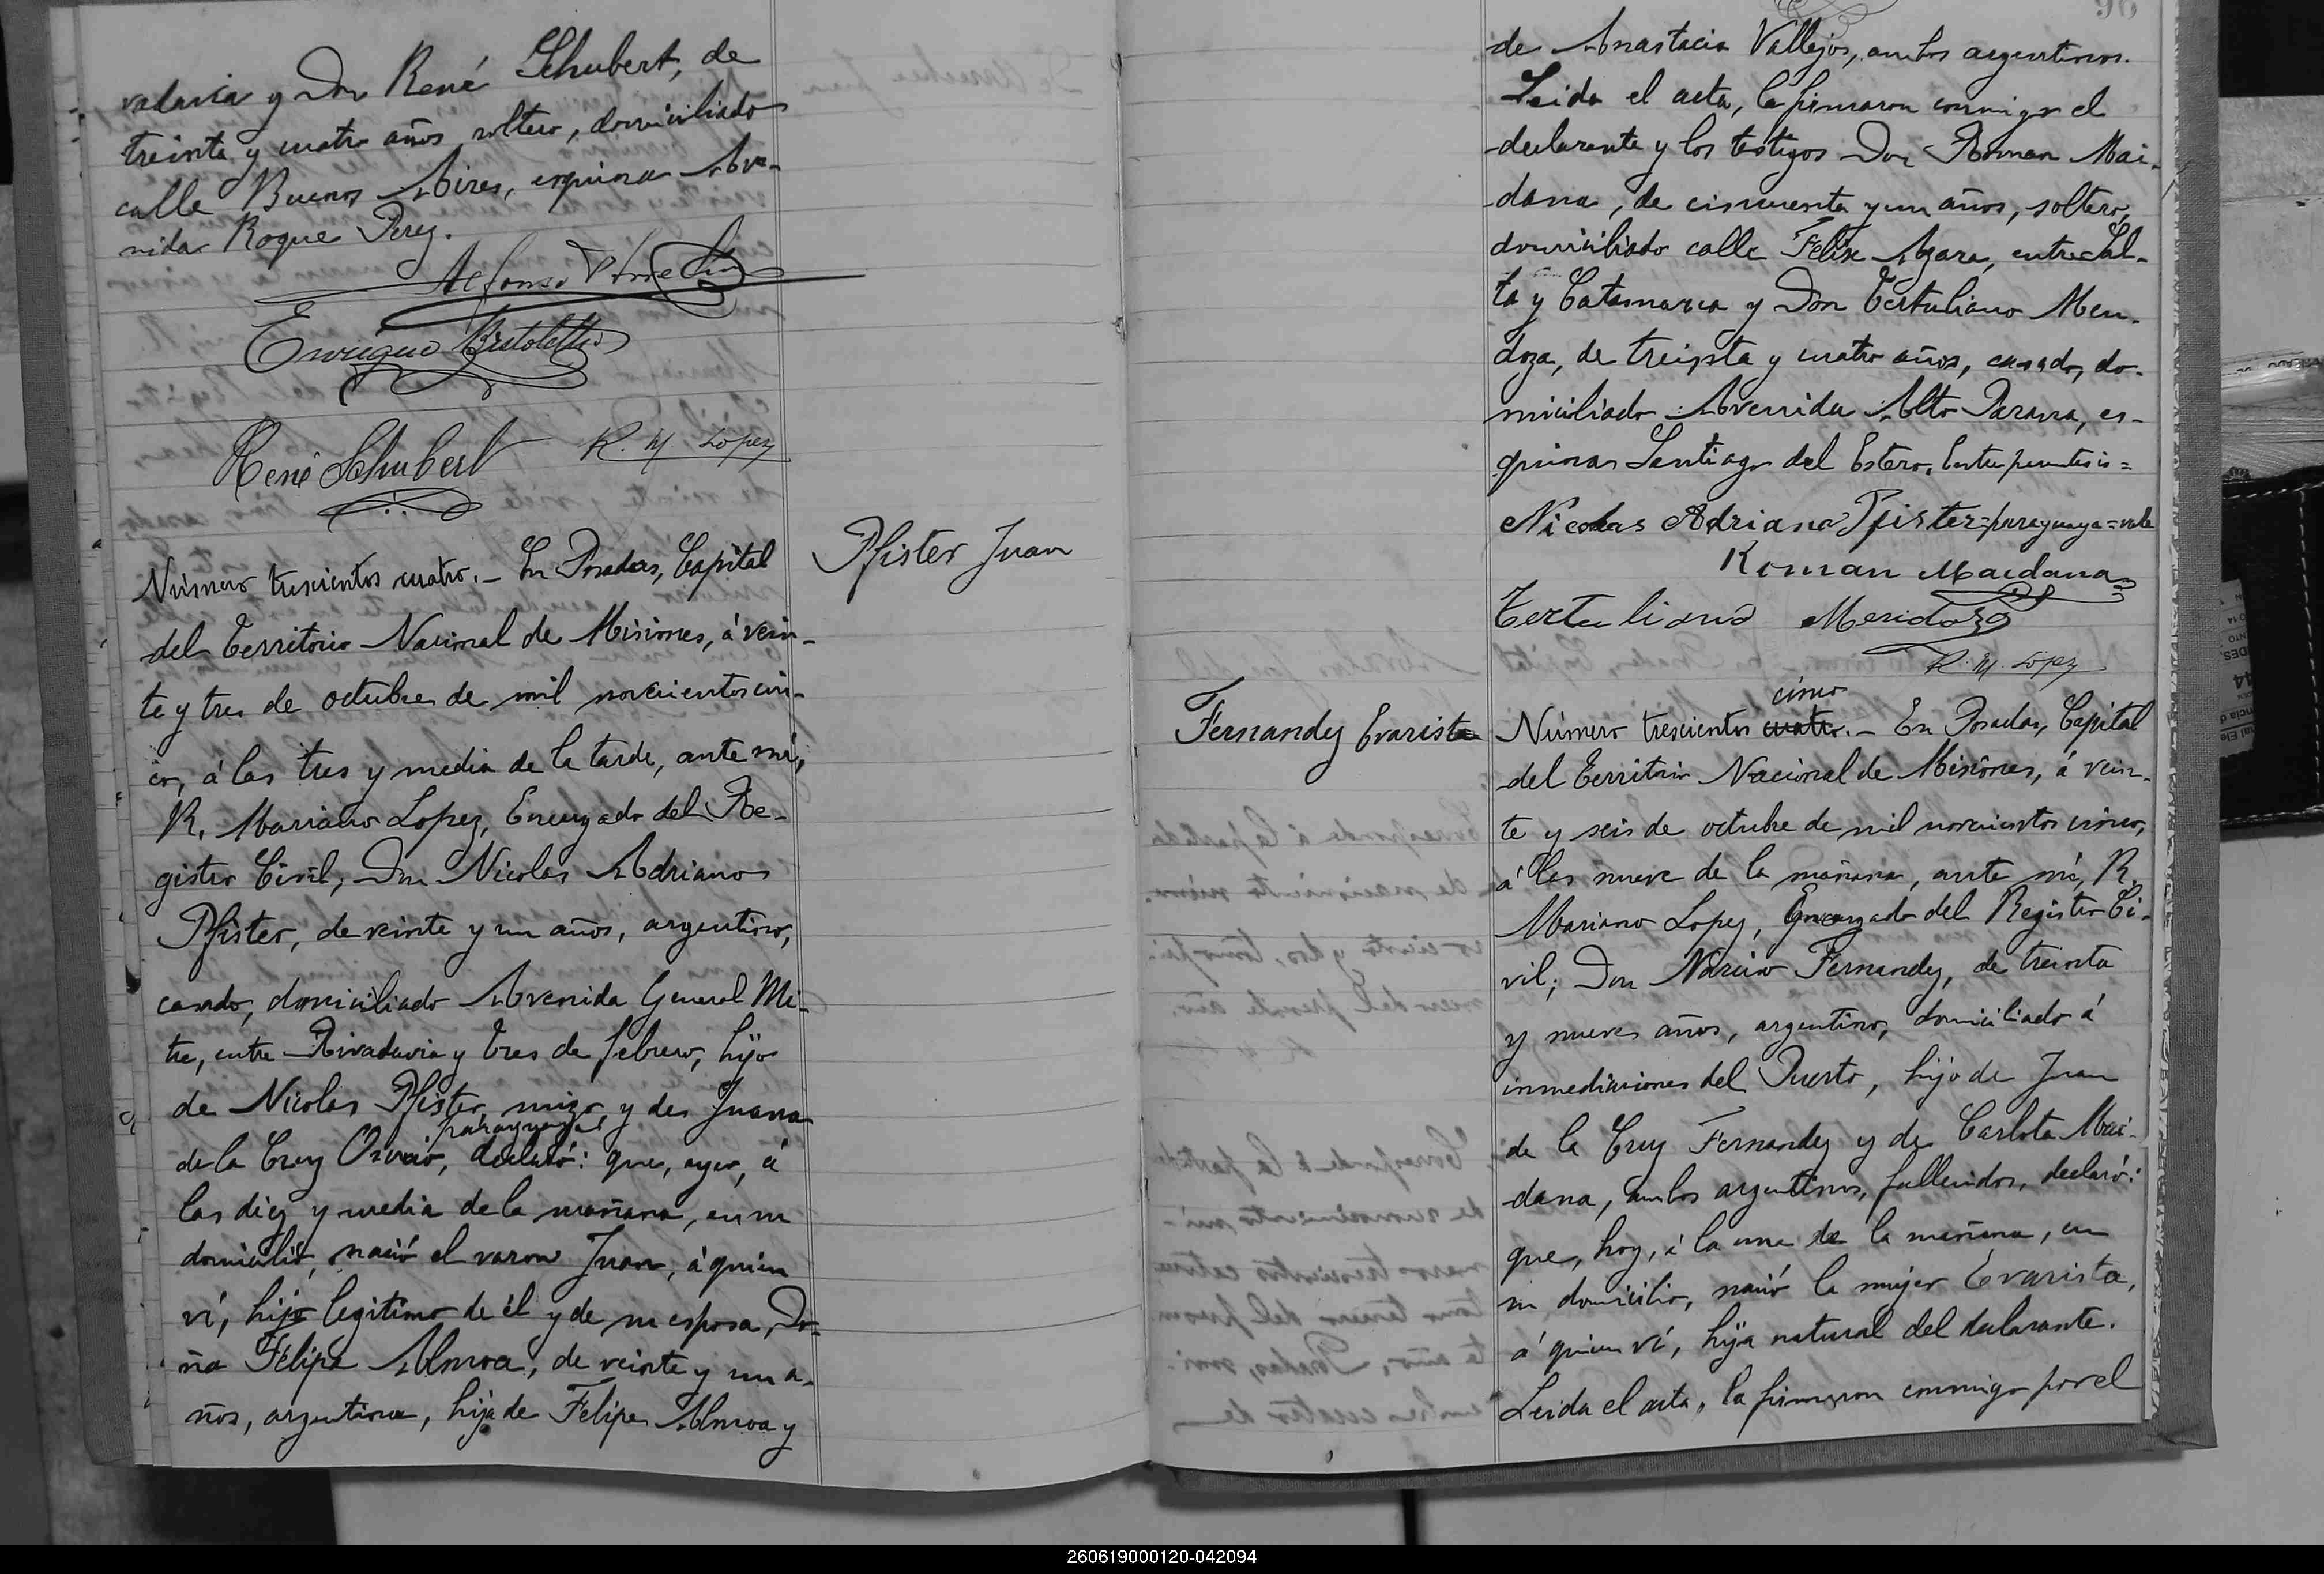 vadavia y Don René Schubert, de
treinta y cuatro años soltero, domiciliado
calle Buenos Aires, esquina Ave-
nida Roque Perez.
Enrique Bertoletti
René Schubert R. M. Lopez
Pfister Juan
Número trescientos cuatro.- En Posadas, Capital
del Territorio Nacional de Misiones, á vein-
te y tres de octubre de mil novecientos cin-
co, á las tres y media de la tarde, ante mí,
R. Mariano Lopez, Encargado del Re-
gistro Civil, Don Nicolas Adriano
Pfister, de veinte y un años, argentino,
casado, domiciliado Avenida General Mi-
tre, entre Rivadavia y Tres de febrero, hijo
de Nicolas Pfister, suizo, y de Juana
paraguaya
de la Cruz Osorio, declaró: que, ayer, á
las diez y media de la mañana, en su
domicilio, nació el varon Juan, á quien
ví, hijo legitimo de él y de su esposa, Do-
ña Felipa Almoa, de veinte y un a-
ños, argentina, hija de Felipe Almoa y
de Anastacia Vallejos, ambos argentinos.
Leida el acta, la firmaron conmigo el
declarante y los testigos Don Roman Mai-
dana, de cincuenta y un años, soltero,
domiciliado calle Felix Azara, entre Sal-
ta y Catamarca y Don Tertuliano Men-
doza, de treinta y cuatro años, casado, do-
miciliado Avenida Alto Parana, es-
quina Santiago del Estero. Entre parentesis=
Nicolas Adriano Pfister=paraguaya=vale
Roman Maidana
Tertuliano Mendoza
R. M. Lopez
Fernandez Evarista
cinco
Número trescientos cuatro.- En Posadas, Capital
del Territorio Nacional de Misiones, á vein-
te y seis de octubre de mil novecientos cinco,
á las nueve de la mañana, ante mí, R.
Mariano Lopez, Encargado del Registro Ci-
vil; Don Narciso Fernandez, de treinta
y nueve años, argentino, domiciliado á
inmediaciones del Puerto, hijo de Juan
de la Cruz Fernandez y de Carlota Mai-
dana, ambos argentinos, fallecidos, declaró:
que, hoy, á la una de la mañana, en
su domicilio, nació la mujer Evarista,
á quien ví, hija natural del declarante.
Leida el acta, la firmaron conmigo por el
260619000120-042094